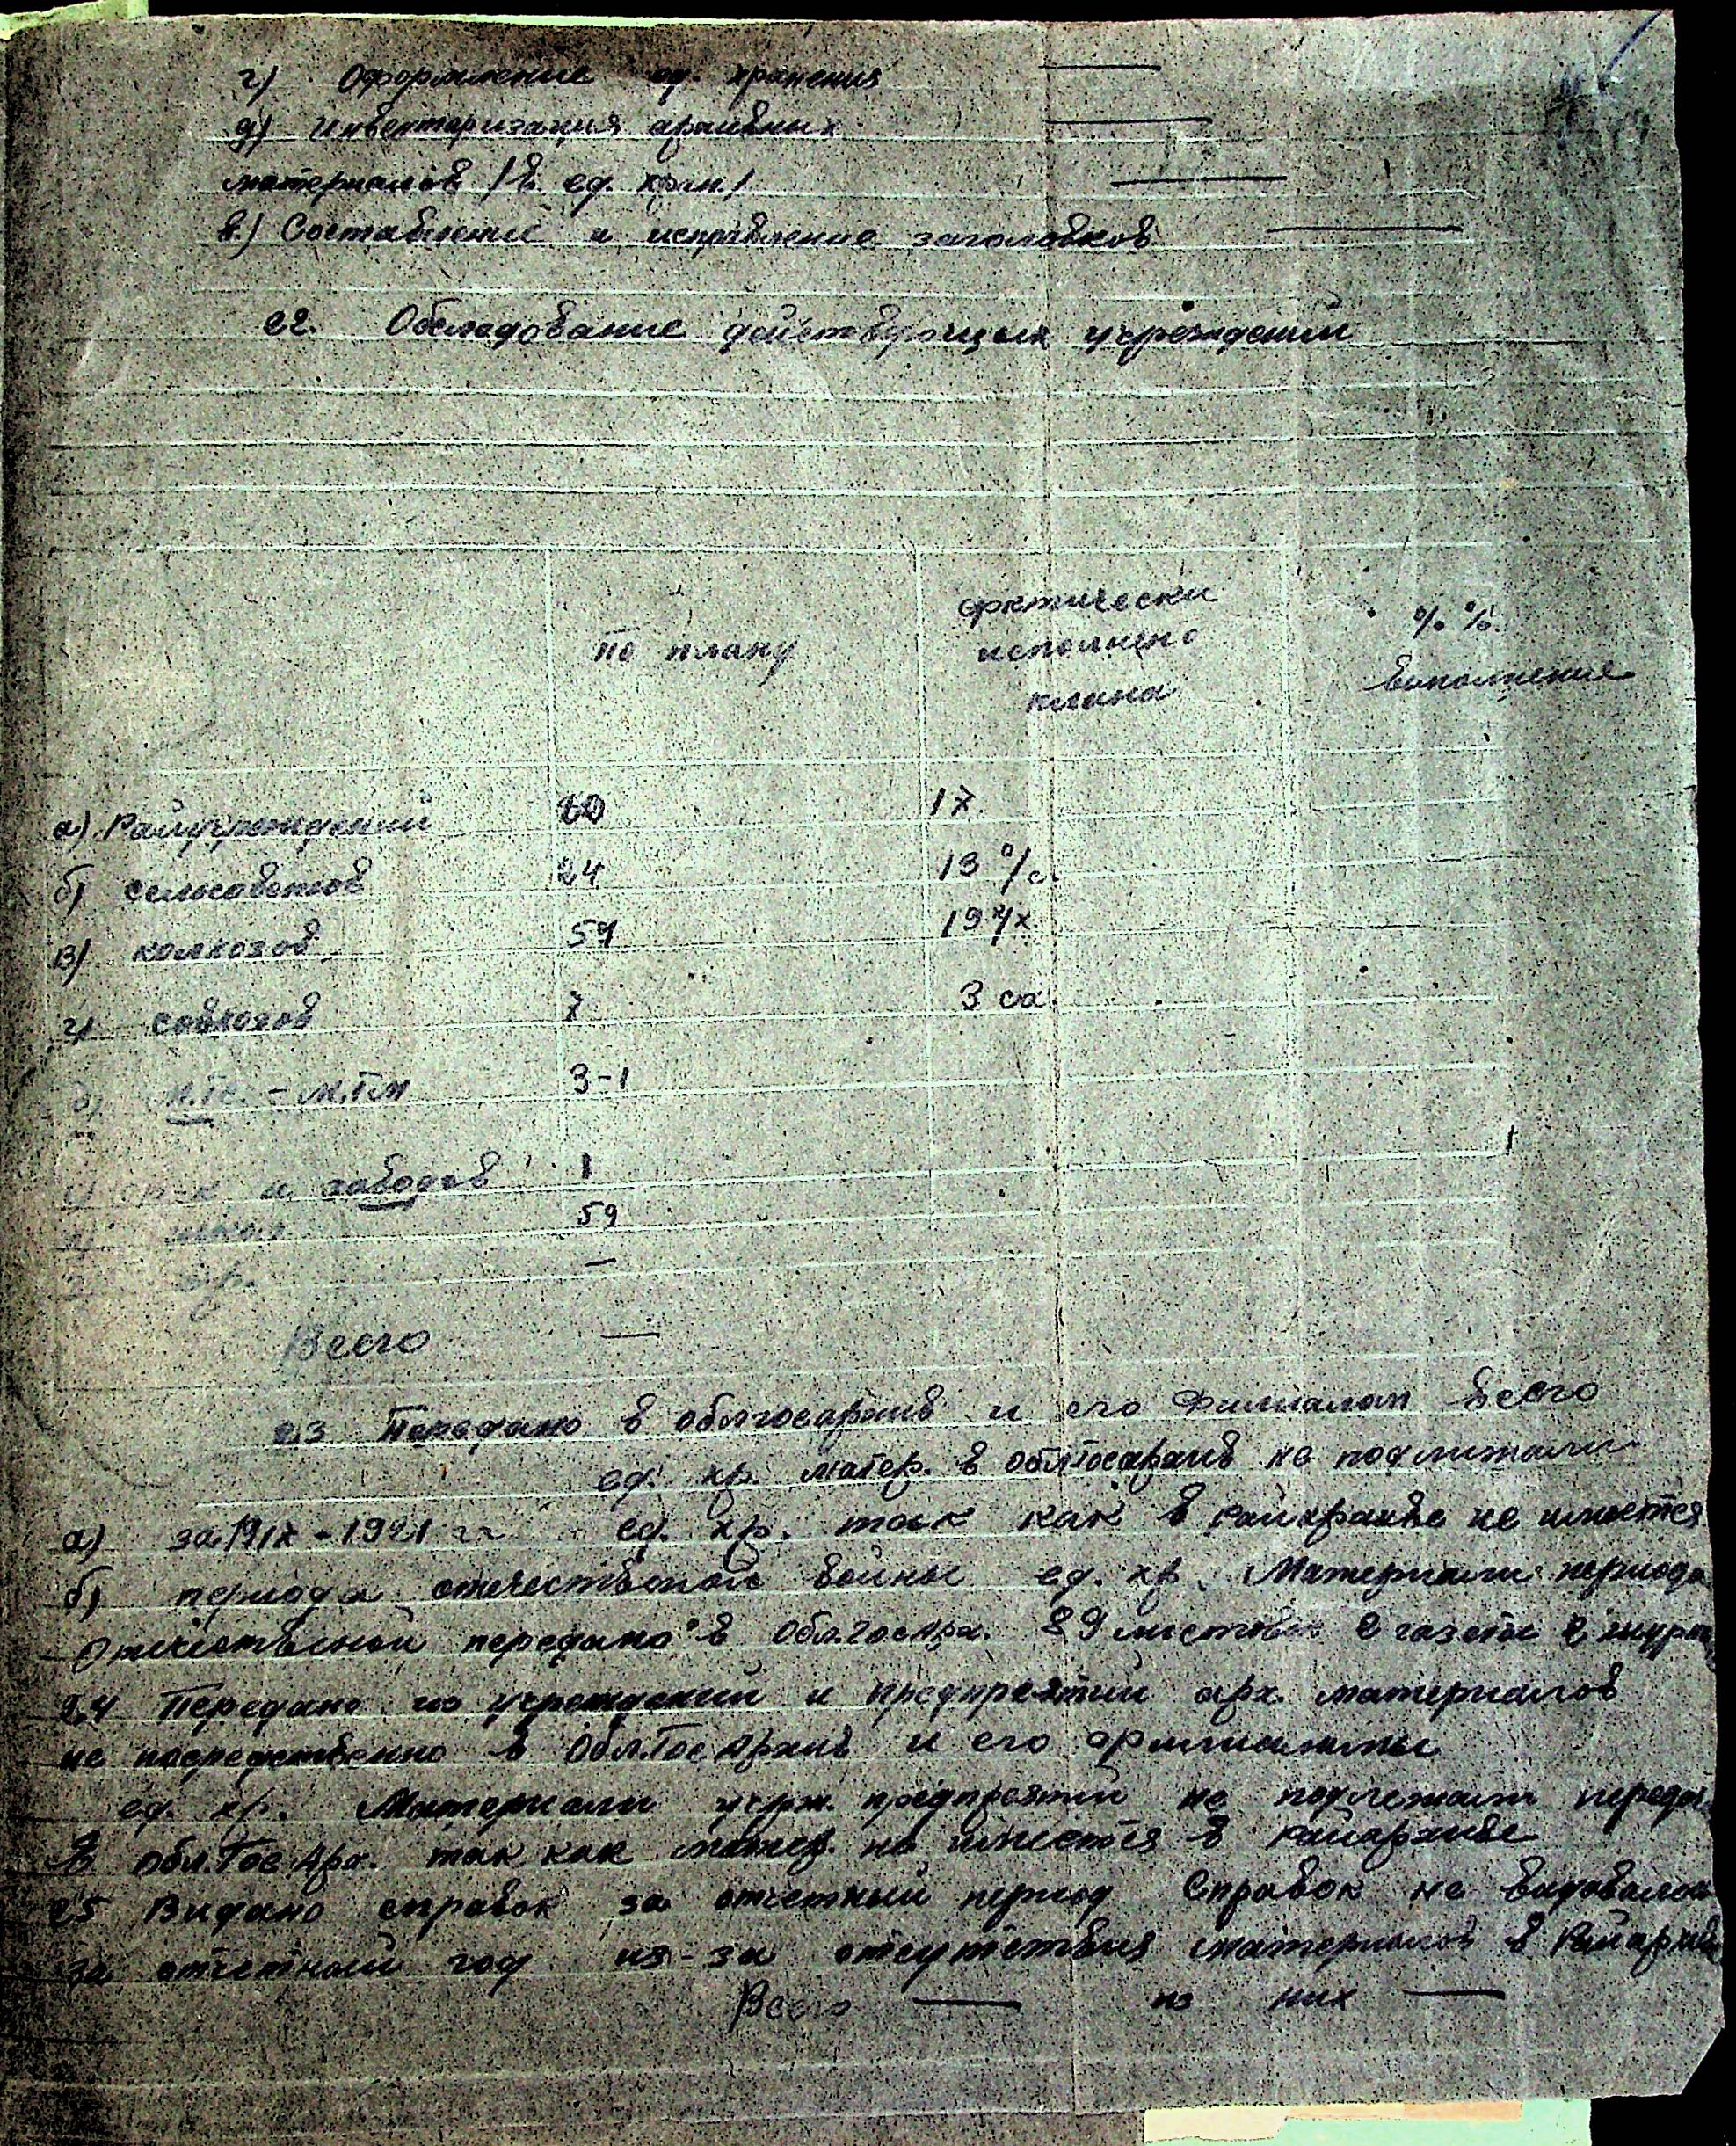 г) Оформление ед. хранения
д) Инвентаризация архивных
материалов /в ед. хран./
в) Составление и исправление заголовков
22. Обследование действующих учреждений
По плану
фактически
исполнено
плана
% %
выполнения
а) Райучреждений 20 17
б) сельсоветов 24 13
в) колхозов 59 19
г) совхозов 7 3
д) М.Тс. - М.Тм 3-1
ф-к и заводов 1
59
др. —
Всего —
23 Передано в облгосархив и его филиалам всего
ед. хр. матер. в облгосархив не подлежали
а) за 1917 - 1921 гг. ед. хр. так как в райархиве не имеется
б) периода отечественой войны ед. хр. Материали периода
Отечественой передано в Обл.Гос.Арх. 89 листовок 2 газеты 2
24 Передано из учреждений и предпреятий арх. материалов
не посредственно в Обл.Гос Архив и его
ед. хр. Материали учрж. предпреятий не подлежали
в Обл.Гос Арх. так как матер. не имеется в райархиве
25 Видано справок за отчетный период Справок не
за отчетный год из-за отсутствия материалов в Райархиве
Всего — из них —